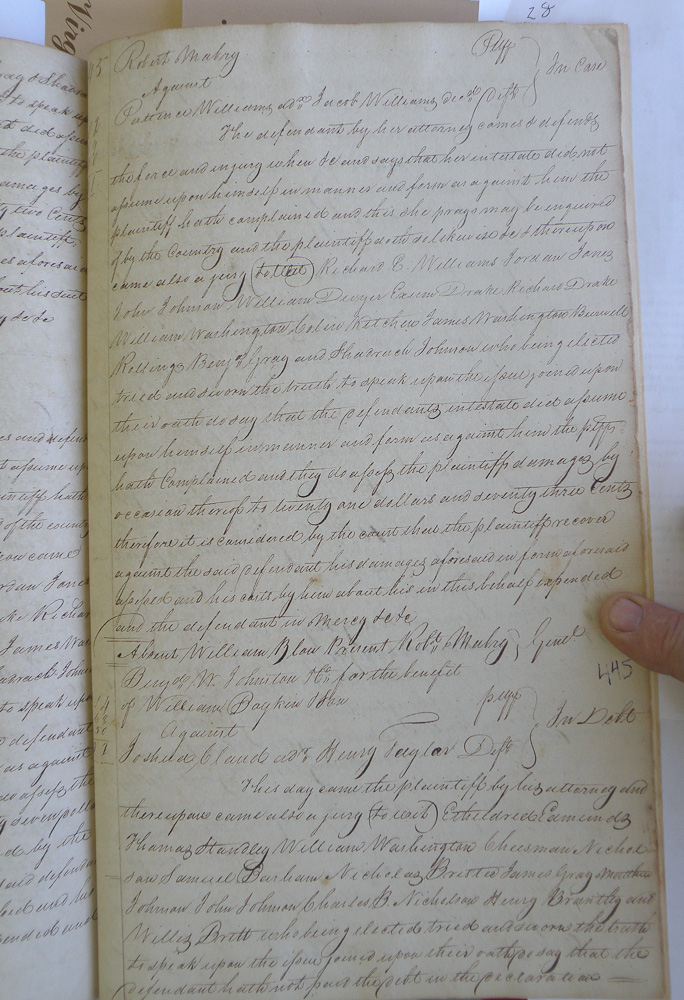 28
Robert Mabry Plff
Against In Case
Patience Williams adx Jacob Williams decd Deft
The defendant by her attorney comes & defends
the force and injury when &c and says that her intestate did not
assume upon himself in manner and form as against him the
plaintiff hath complained and this she prays may be enquired
of by the Country and the plaintiff doth so likewise &c & thereupon
came also a jury (to wit) Richard E. Williams Jordan Jones
John Johnson William Dwyer Exum Drake Richard Drake
William Washington Colin Kitchen James Washington Burwell
Rollings Benja Gray and Shadrack Johnson who being elected
tried and sworn the truth to speak upon the issue joined upon
their oath do say that the defendants intestate did assume
upon himself in manner and form as against him the plff
hath Complained and they do assess the plaintiffs damages by
occasion thereof to twenty one dollars and seventy three Cents
therefore it is considered by the court that the plaintiff recover
against the said defendant his damages aforesaid in form aforesaid
assessed and his costs by him about his in this behalf expended
and the defendant in Mercy &c &c
Absent William Blow Present Robt Mabry Gent
445
Benja W. Johnston for the benefit
of William Boykin plff
Against In Debt
Joshua Claud adr Henry Taylor Deft
This day came the plaintiff by his attorney and
thereupon came also a jury (to wit) Etheldred Edmunds
Thomas Handley William Washington Cheesman Nichol
son Samuel Barham Nicholas James Gray
Johnson John Johnson Charles B. Nicholson Henry Brantley and
Willis Britt who being elected tried and sworn the truth
to speak upon the issue joined upon their oath do say that the
defendant hath not paid the debt in the declaration